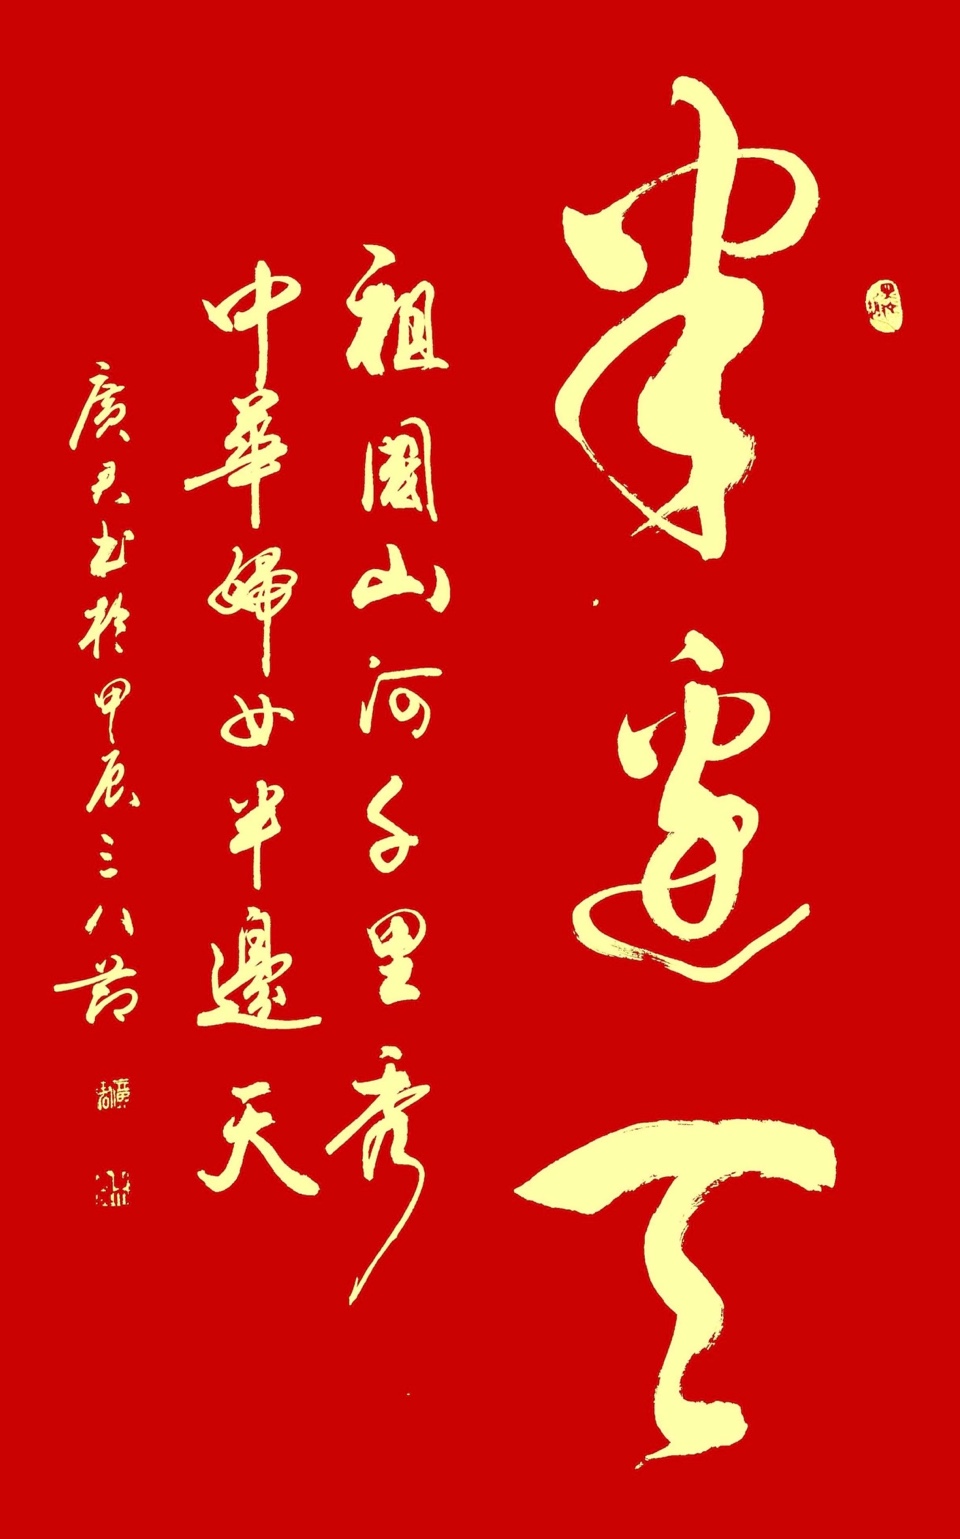 半边天
祖國山河千里秀
中華婦女半邊天
廣君书於甲辰三八節